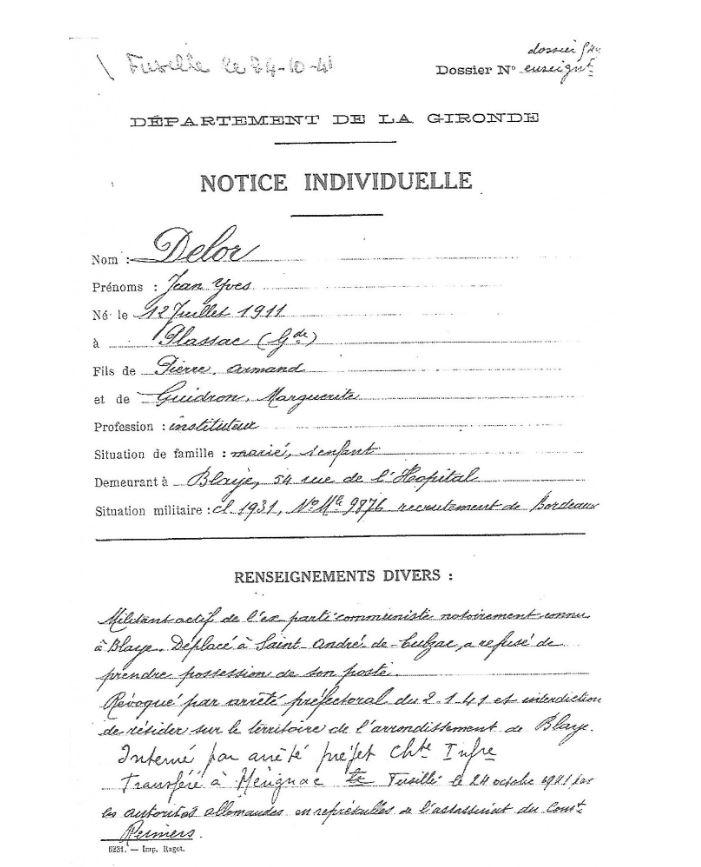 Fusillé le 24-10-41
dossier
Dossier N° enseignt
DÉPARTEMENT DE LA GIRONDE
NOTICE INDIVIDUELLE
Nom : Delor
Prénoms : Jean Yves
Né le 12 Juillet 1911
à Plassac (Gde)
Fils de Pierre, Armand
et de Guidron, Marguerite
Profession : instituteur
Situation de famille : marié, 1 enfant
Demeurant à Blaye, 54 rue de l'Hopital
Situation militaire : cl 1931, N° Mle 9876 recrutement de Bordeaux
RENSEIGNEMENTS DIVERS :
Militant actif de l'ex parti communiste notoirement connu
à Blaye. Déplacé à Saint-André de Cubzac, a refusé de
prendre possession de son poste.
Révoqué par arrêté préfectoral du 2.1.41 et interdiction
de résider sur le territoire de l'arrondissement de Blaye.
Interné par arrêté préfet Chte Infre
Transféré à Mérignac Fusillé le 24 octobre 1941 par
les autorités allemandes en représailles de l'assassinat du Comt
Reimers.
6231. — Imp. Raget.